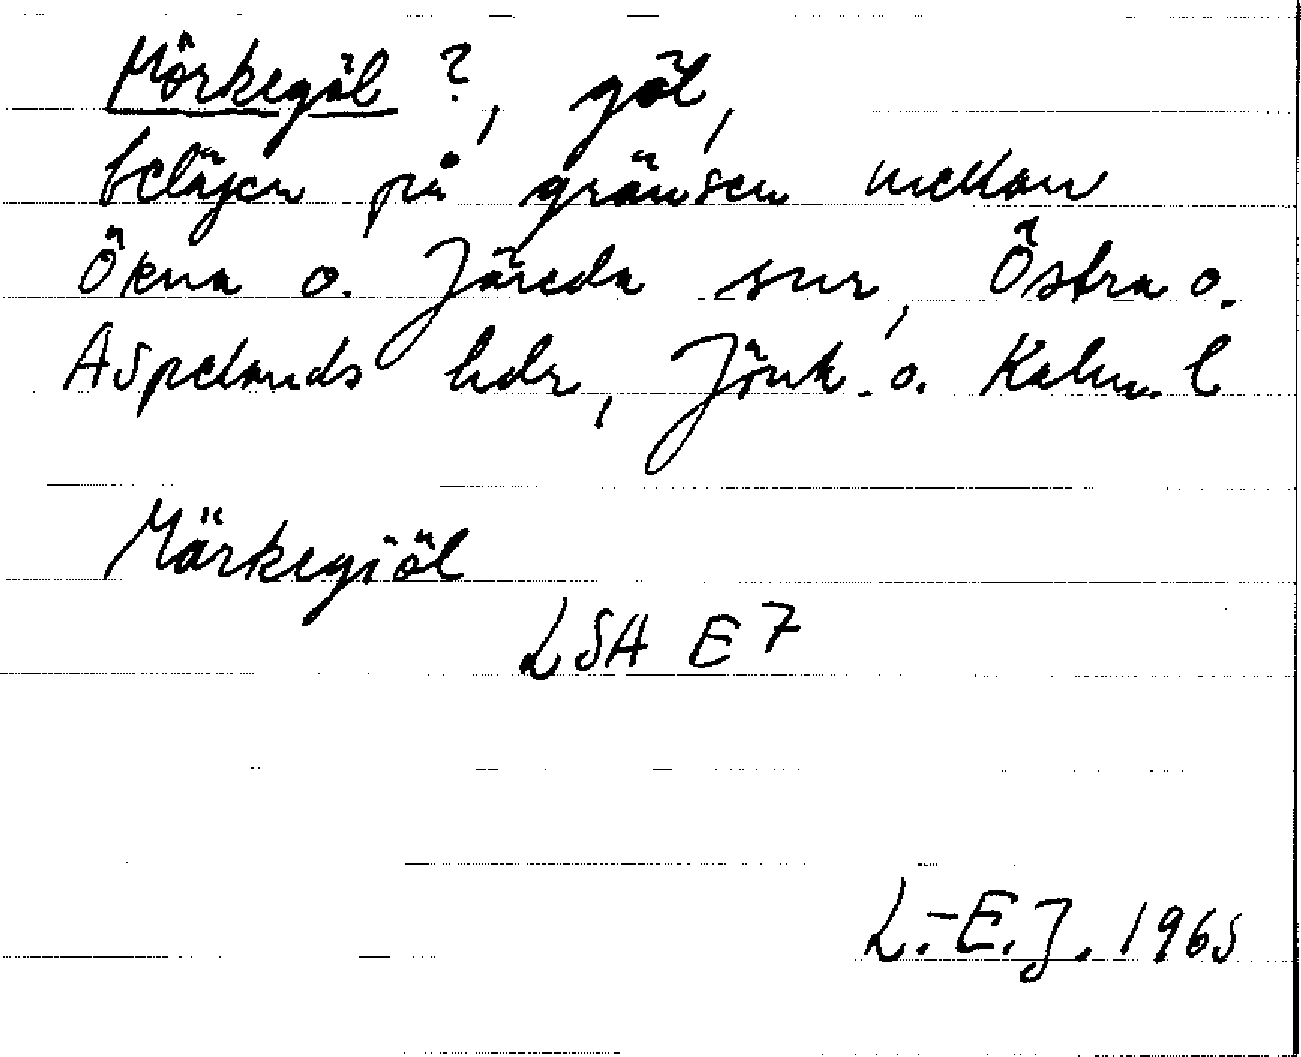 Mörkegöl ?, göl,
belägen på gränsen mellan
Ökna o. Järeda snr, Östra o.
Aspelands hdr, Jönk. o. Kalm. l
Märkegiöl
LSA E7
L.-E.J. 1965